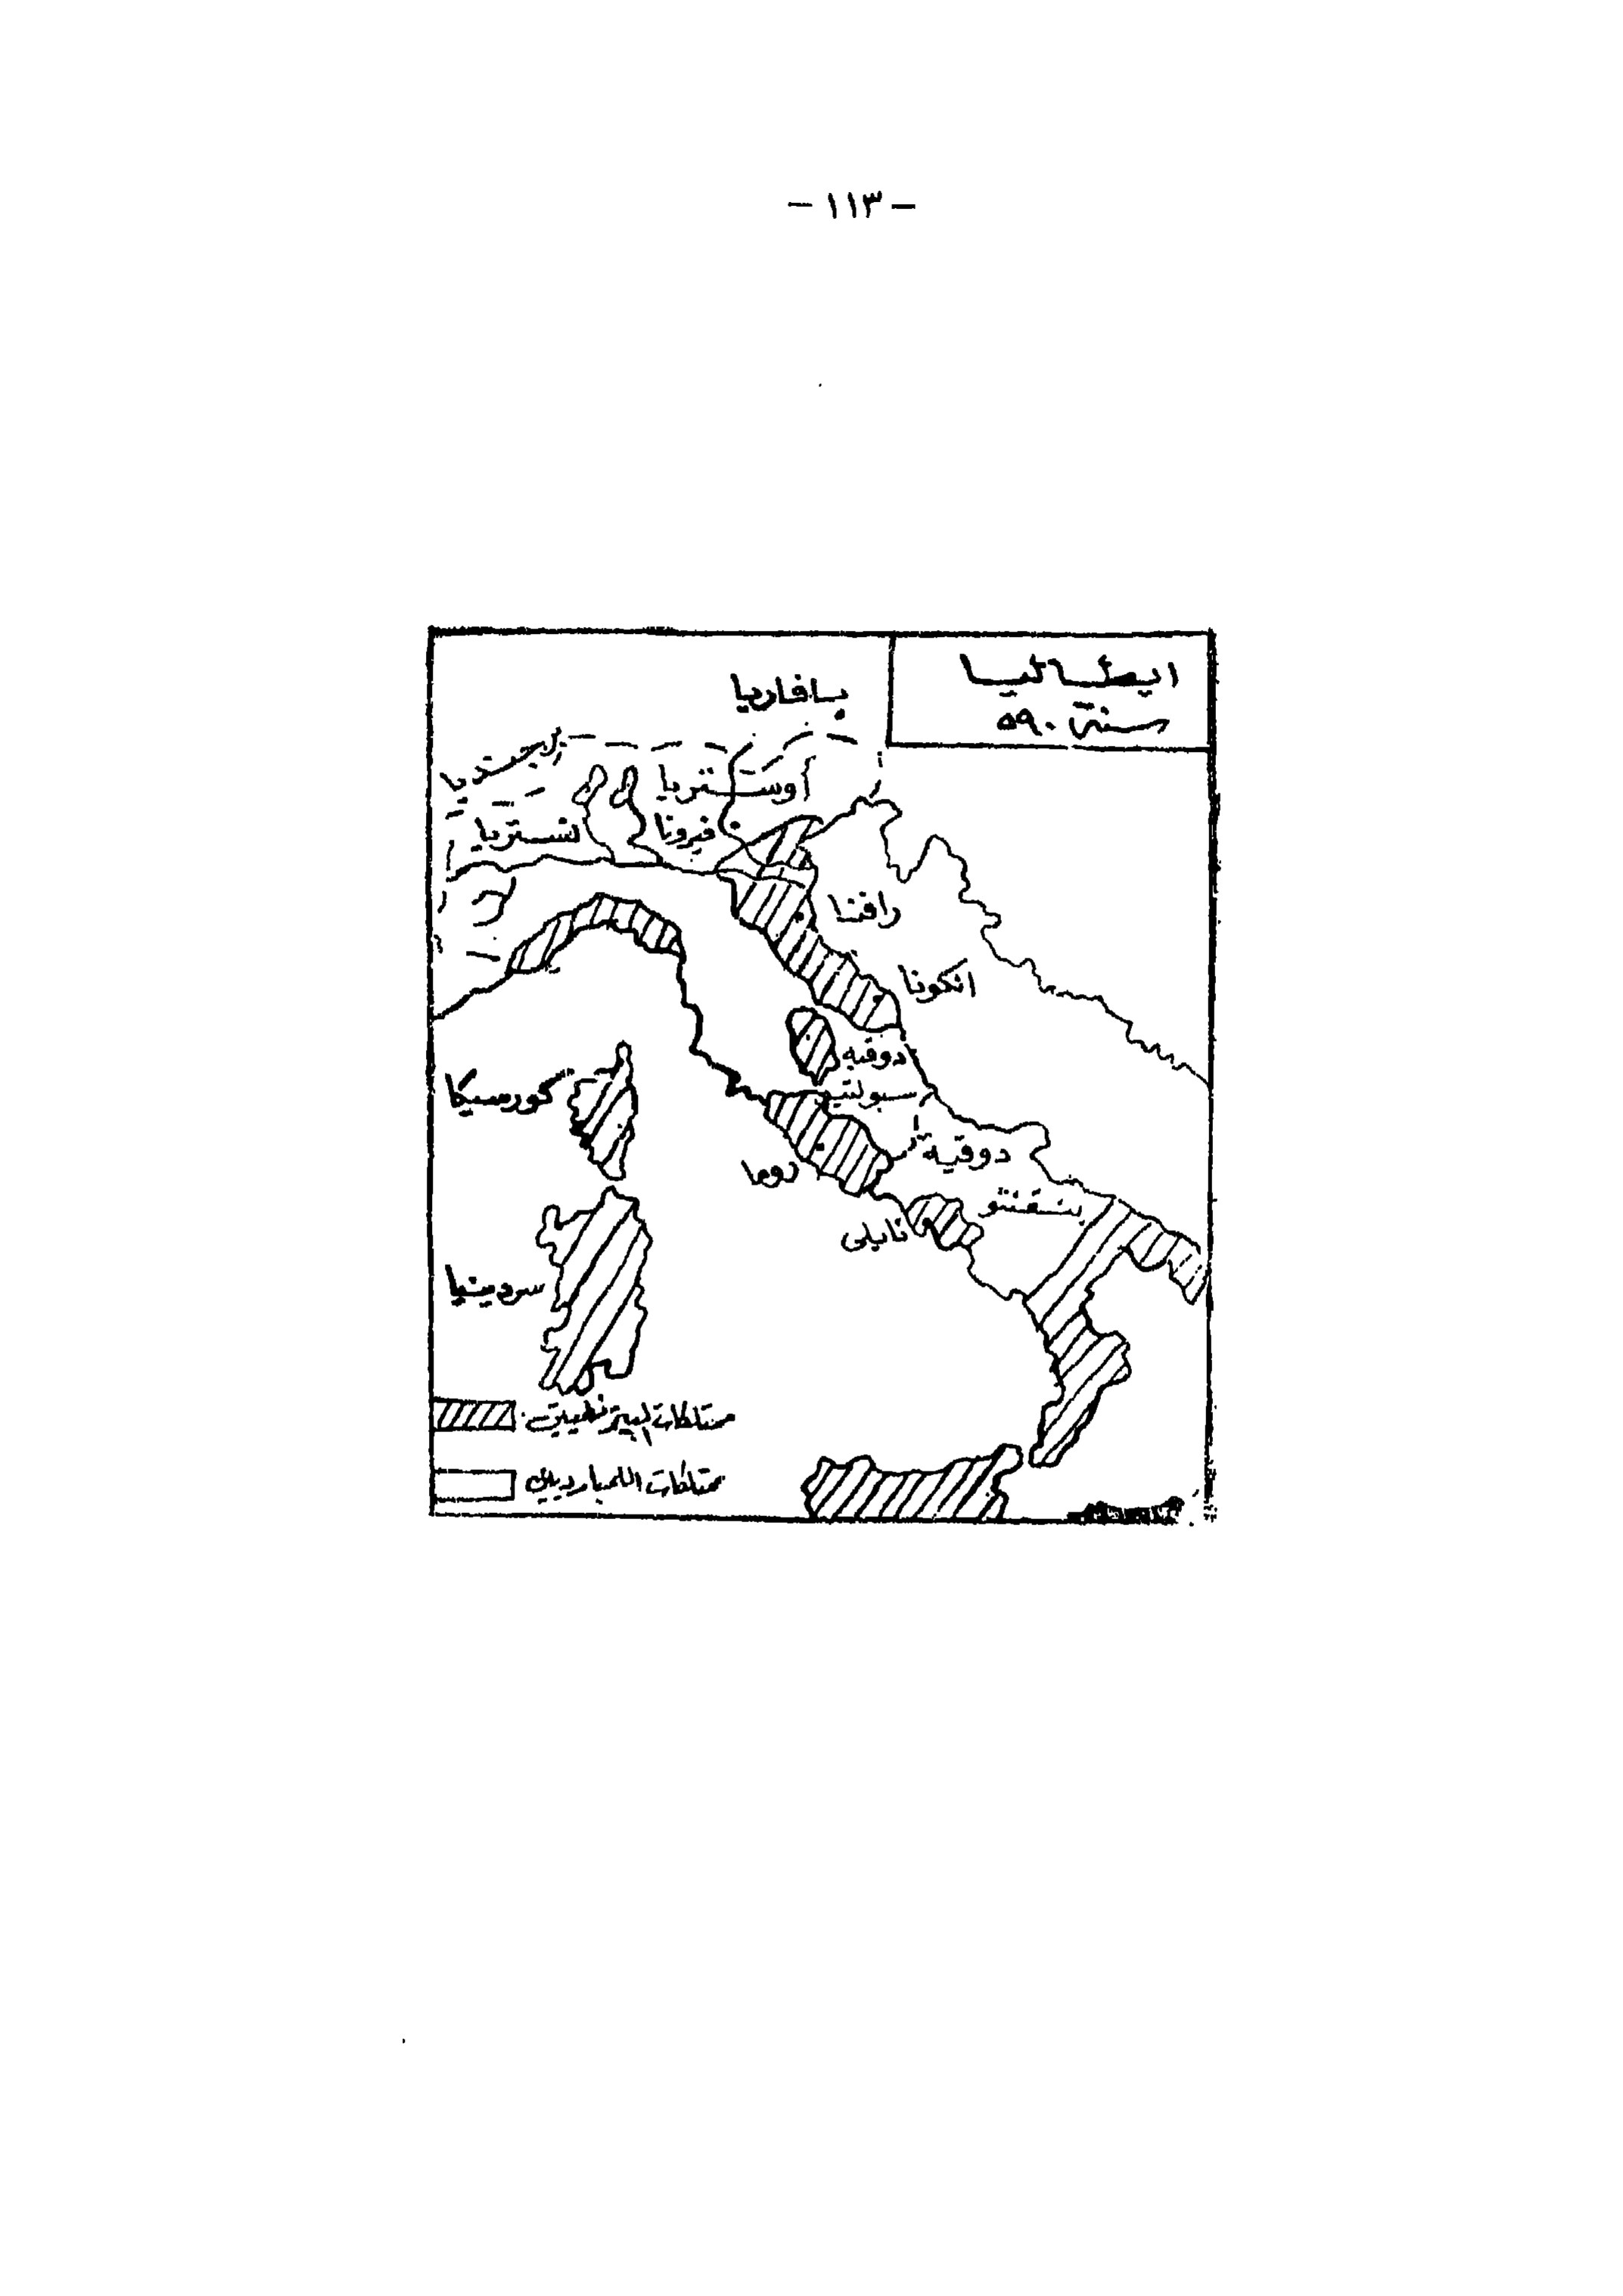 - ١١٣ -
ايطاليا
سنة ٥٩٠
بافاريا
اوستريا
نستريا
فيرونا
رافنا
انكونا
دوقية
سبوليتو
كورسيكا
روما
دوقية
بنفنتو
نابلى
سردينيا
ممتلكات البيزنطيين
ممتلكات اللمبارديين